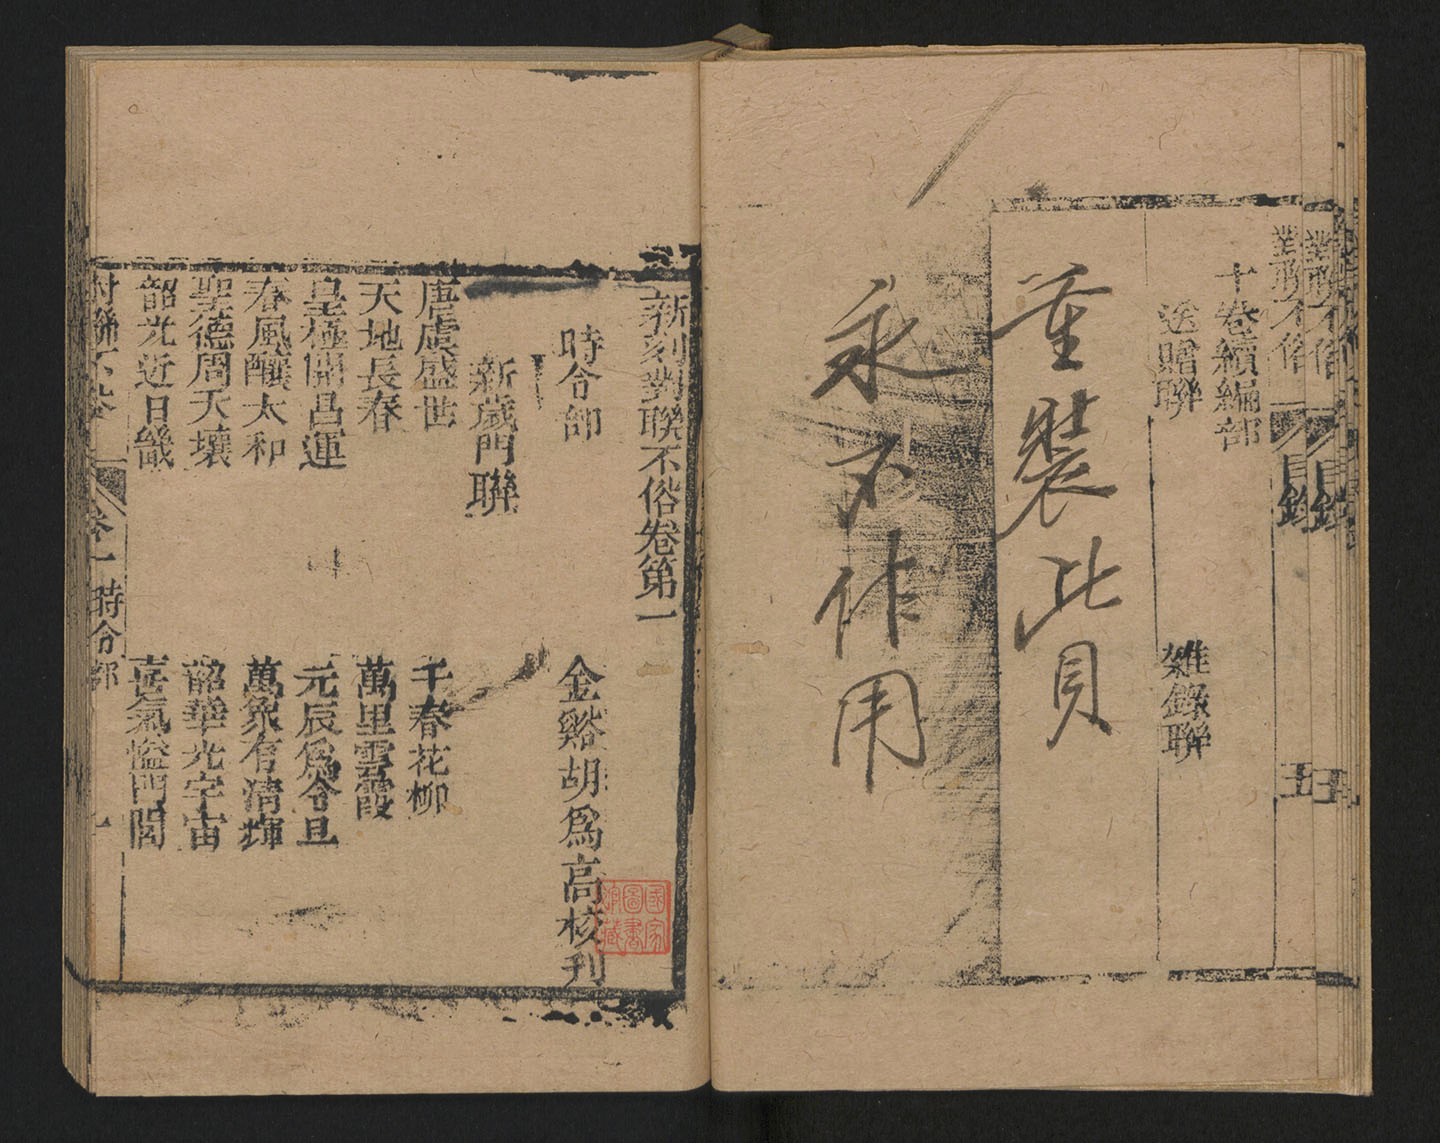 對聯不俗
目錄
五
十卷續編部
送贈聯
雜錄聯
重裝此頁
永不作用
新刻對聯不俗卷第一
時令部
金谿胡為高校刊
新歲門聯
唐虞盛世
千春花柳
天地長春
萬里雲霞
皇極開昌運
元辰爲令旦
春風釀太和
萬象有清輝
聖德周天壤
韶華光宇宙
韶光近日畿
喜氣溢門閭
對聯不俗
卷一
時令部
一
國家圖書館藏